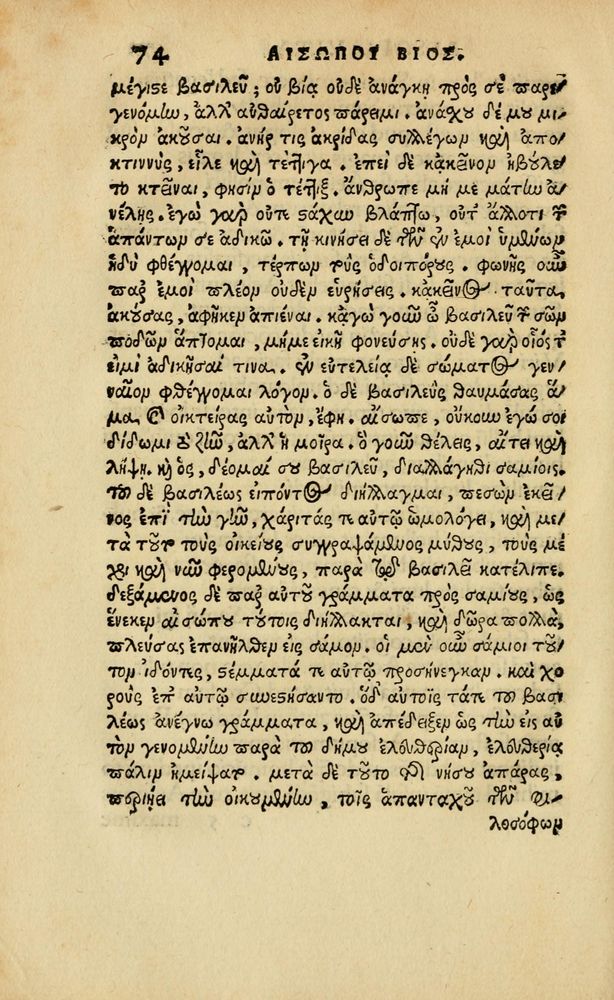 74 ΑΙΣΩΠΟΥ ΒΙΟΣ.
μέγιστε βασιλεῦ; οὐ βίᾳ οὐδὲ ἀνάγκῃ πρός σε παρε/
γενόμην, ἀλλ' αὐθαίρετος πάρειμι. ἀνάχου δέ μου μι/
κρὸν ἀκοῦσαι. ἀνήρ τις ἀκρίδας συλλέγων καὶ ἀπο/
κτιννὺς, εἷλε καὶ τέτιγα. ἐπεὶ δὲ κἀκεῖνον ἠβούλε/
το κτεῖναι, φησὶν ὁ τέτιξ. ἄνθρωπε μή με μάτην ἀ/
νέλῃς. ἐγὼ γὰρ οὔτε στάχυν βλάπτω, οὔτ' ἄλλό τι τῶν
ἁπάντων σε ἀδικῶ. τῇ κινήσει δὲ τῶν ἐν ἐμοὶ ὑμένων
ἡδὺ φθέγγομαι, τέρπων τοὺς ὁδοιπόρους. φωνῆς οὖν
παρ' ἐμοὶ πλέον οὐδὲν εὑρήσεις. κἀκεῖνος ταῦτα
ἀκούσας, ἀφῆκεν ἀπιέναι. κἀγὼ γοῦν ὦ βασιλεῦ τῶν σῶν
ποδῶν ἅπτομαι, μή με εἰκῆ φονεύσῃς. οὐδὲ γὰρ οἷός τ'
εἰμὶ ἀδικῆσαί τινα. ἐν εὐτελείᾳ δὲ σώματος γεν/
ναῖον φθέγγομαι λόγον. ὁ δὲ βασιλεὺς θαυμάσας ἅ/
μα καὶ οἰκτείρας αὐτὸν, ἔφη. αἴσωπε, οὐκ ἐγώ σοι
δίδωμι τὸ ζῆν, ἀλλ' ἡ μοῖρα. ὃ γοῦν θέλεις, αἴτει καὶ
λήψῃ. καὶ ὃς, δέομαί σου βασιλεῦ, διαλλάγηθι σαμίοις.
τοῦ δὲ βασιλέως εἰπόντος διήλλαγμαι, πεσὼν ἐκεῖ/
νος ἐπὶ τὴν γῆν, χάριτάς τε αὐτῷ ὡμολόγει, καὶ με/
τὰ τοῦτο τοὺς οἰκείους συγγραψάμενος μύθους, τοὺς μέ
χρι καὶ νῦν φερομένους, παρὰ τῷ βασιλεῖ κατέλιπε.
δεξάμενος δὲ παρ' αὐτοῦ γράμματα πρὸς σαμίους, ὡς
ἕνεκεν αἰσώπου τούτοις διήλλακται, καὶ δῶρα πολλὰ,
πλεύσας ἐπανῆλθεν εἰς σάμον. οἱ μὲν οὖν σάμιοι τοῦ/
τον ἰδόντες, στέμματά τε αὐτῷ προσήνεγκαν. καὶ χο
ροὺς ἐπ' αὐτῷ συνεστήσαντο. ὁ δ' αὐτοῖς τά τε τοῦ βασι
λέως ἀνέγνω γράμματα, καὶ ἀπέδειξεν ὡς τὴν εἰς αὐ
τὸν γενομένην παρὰ τοῦ δήμου ἐλευθερίαν, ἐλευθερίᾳ
πάλιν ἠμείψατο. μετὰ δὲ τοῦτο τῆς νήσου ἀπάρας,
περιῄει τὴν οἰκουμένην, τοῖς ἁπανταχοῦ τῶν φι/
λοσόφων